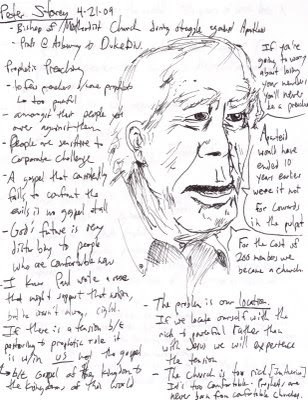 Peter Storey 4-21-09
- Bishop of Methodist Church during struggle against Apartheid
- Prof @ Asbury to Duke Div.
Prophetic Preaching
- to few preachers have prophets
too painful
- amongst that people not
over against them.
- People are sensitive to
corporate challenge
- A gospel that
fails to confront the
evils is no gospel at all
- God's future is very
disturbing to people
who are comfortable now
- I know Paul wrote a verse
that might support that notion,
but he isn't always right.
- If there is a tension b/t
pastoring to prophetic role it
is w/in us not the gospel
to b/t Gospel of the kingdom to
the kingdoms of this world
If you're
going to
worry
about losing
your members
you'll never
be a preacher
Aparteid
would have
ended 10
years earlier
were it not
for cowards
in the pulpit
For the cost of
200 members we
became a church.
- The problem is our location.
If we locate ourself with the
rich & powerful rather than
with Jesus we will experience
the tension
- The church is too rich
It's too comfortable. Prophets are
never born from comfortable churches